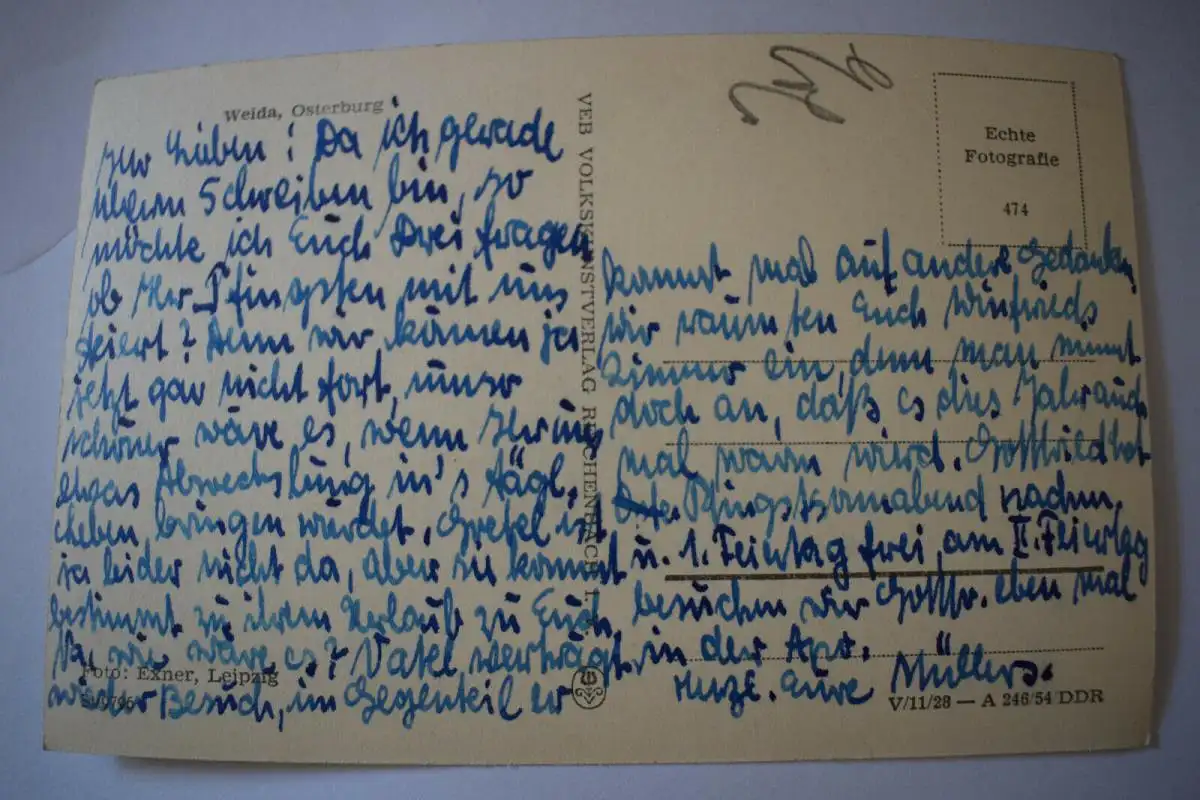 Weida, Osterburg
Ihr Lieben! Da ich gerade
beim Schreiben bin, so
möchte ich Euch Drei fragen,
ob Ihr Pfingsten mit uns
feiert? Denn wir kämen ja
jetzt gar nicht fort, umso
schöner wäre es, wenn Ihr uns
etwas Abwechslung in's tägl.
Leben bringen würdet. Gretel ist
ja leider nicht da, aber sie kommt
bestimmt zu ihrem Urlaub zu Euch.
Na, wie wäre es? Vatel verträgt
wieder Besuch, im Gegenteil er
Foto: Exner, Leipzig
VEB VOLKSKUNSTVERLAG REICHENBACH
Echte
Fotografie
474
kommt mal auf andere Gedanken.
Wir räumten Euch Winfrieds
Zimmer ein, denn man nimmt
doch an, daß es dies Jahr auch
mal warm wird. Gotthild hat
Pfingstsonnabend nachm.
u. 1. Feiertag frei, am II. Feiertag
besuchen wir Gotth. eben mal
in der Apo.
Herzl. Eure Müllers.
V/11/28 — A 246/54 DDR